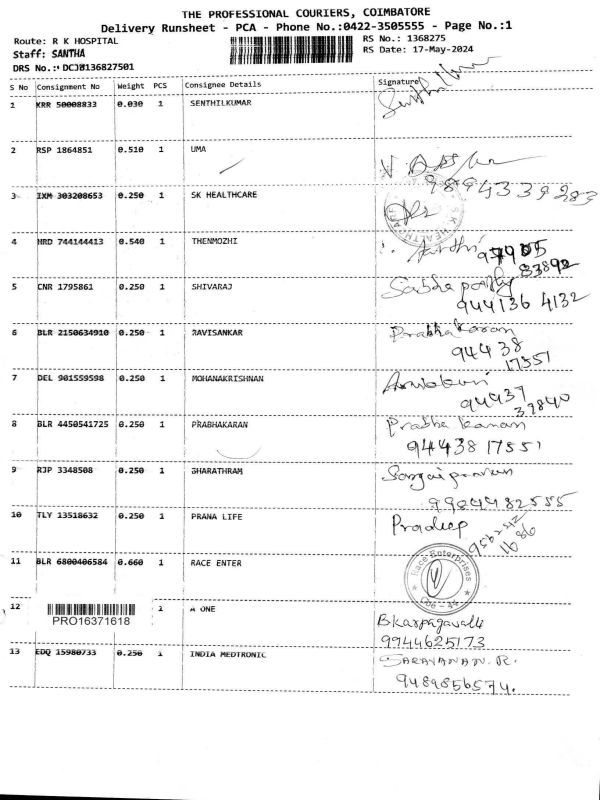 THE PROFESSIONAL COURIERS, COIMBATORE
Delivery Runsheet - PCA - Phone No.:0422-3505555 - Page No.:1
Route: R K HOSPITAL RS No.: 1368275
Staff: SANTHA RS Date: 17-May-2024
DRS No.: DCJB136827501
S No Consignment No Weight PCS Consignee Details Signature
1 KRR 50008833 0.030 1 SENTHILKUMAR
2 RSP 1864851 0.510 1 UMA
9894339283
3 IXM 303208653 0.250 1 SK HEALTHCARE
4 HRD 744144413 0.540 1 THENMOZHI
83892
5 CNR 1795861 0.250 1 SHIVARAJ
944136 4132
6 BLR 2150634910 0.250 1 RAVISANKAR Prabhakaran
94438
17551
7 DEL 901559598 0.250 1 MOHANAKRISHNAN
94437
32840
8 BLR 4450541725 0.250 1 PRABHAKARAN Prabhakaran
94438 17551
9 RJP 3348508 0.250 1 BHARATHRAM
9984482555
10 TLY 13518632 0.250 1 PRANA LIFE Pradeep
11 BLR 6800406584 0.660 1 RACE ENTER Race Enterprises
Cbe - 44
12 PRO16371618 1 A ONE B Karpagavalli
9944625173
13 EDQ 15980733 0.250 1 INDIA MEDTRONIC SARAVANAN. R.
9489856574.